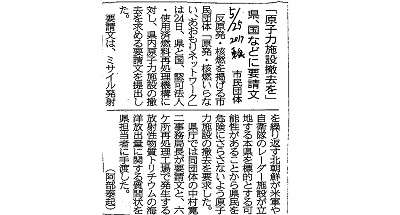 「原子力施設撤去を」
県、国などに要請文
市民団体
5/25
2017
反原発・核燃を掲げる市
民団体「原発・核燃いらな
い、あおもりネットワーク」
は24日、県と国、認可法人
・使用済燃料再処理機構に
対し、県内原子力施設の撤
去を求める要請文を提出し
た。
要請文は、ミサイル発射
を繰り返す北朝鮮が米軍や
自衛隊のレーダー施設が立
地する本県を標的とする可
能性があることから県民を
危険にさらさないよう原子
力施設の撤去を要求した。
県庁では同団体の中村寛
二事務局長が要請文と、六
ケ所再処理工場で発生する
放射性物質トリチウムの海
洋放出量に関する質問状を
県担当者に手渡した。
(阿部泰起)